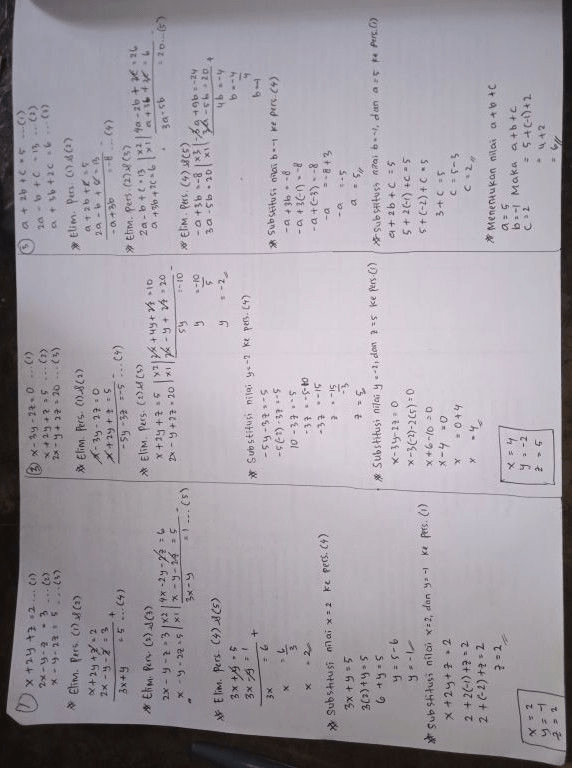 1) x + 2y + z = 2 ... (1)
2x - y - z = 3 ... (2)
x - y - 2z = 5 ... (3)
* Elim. Pers. (1) & (2)
x + 2y + z = 2
2x - y - z = 3 +
3x + y = 5 ... (4)
* Elim. Pers. (2) & (3)
2x - y - z = 3 | x2 | 4x - 2y - 2z = 6
x - y - 2z = 5 | x1 | x - y - 2z = 5 -
3x - y = 1 ... (5)
* Elim. Pers. (4) & (5)
3x + y = 5
3x - y = 1 +
3x = 6
x = 6/3
x = 2
* Substitusi nilai x = 2 ke pers. (4)
3x + y = 5
3(2) + y = 5
6 + y = 5
y = 5 - 6
y = -1
* Substitusi nilai x = 2, dan y = -1 ke pers. (1)
x + 2y + z = 2
2 + 2(-1) + z = 2
2 + (-2) + z = 2
z = 2
x = 2
y = -1
z = 2
2) x - 3y - 2z = 0 ... (1)
x + 2y + z = 5 ... (2)
2x - y + 2z = 20 ... (3)
* Elim. Pers. (1) & (2)
x - 3y - 2z = 0
x + 2y + z = 5 -
-5y - 3z = -5 ... (4)
* Elim. Pers. (2) & (3)
x + 2y + z = 5 | x2 | 2x + 4y + 2z = 10
2x - y + 2z = 20 | x1 | 2x - y + 2z = 20 -
5y = -10
y = -10/5
y = -2
* Substitusi nilai y = -2 ke pers. (4)
-5y - 3z = -5
-5(-2) - 3z = -5
10 - 3z = -5
-3z = -5 - 10
-3z = -15
z = -15/-3
z = 5
* Substitusi nilai y = -2, dan z = 5 ke pers. (1)
x - 3y - 2z = 0
x - 3(-2) - 2(5) = 0
x + 6 - 10 = 0
x - 4 = 0
x = 0 + 4
x = 4
x = 4
y = -2
z = 5
3) a + 2b + c = 5 ... (1)
2a - b + c = 13 ... (2)
a + 3b + 2c = 6 ... (3)
* Elim. Pers. (1) & (2)
a + 2b + c = 5
2a - b + c = 13 -
-a + 3b = -8 ... (4)
* Elim. Pers. (2) & (3)
2a - b + c = 13 | x2 | 4a - 2b + 2c = 26
a + 3b + 2c = 6 | x1 | a + 3b + 2c = 6 -
3a - 5b = 20 ... (5)
* Elim. Pers. (4) & (5)
-a + 3b = -8 | x3 | -3a + 9b = -24
3a - 5b = 20 | x1 | 3a - 5b = 20 +
4b = -4
b = -4/4
b = -1
* Substitusi nilai b = -1 ke pers. (4)
-a + 3b = -8
-a + 3(-1) = -8
-a + (-3) = -8
-a = -8 + 3
-a = -5
a = 5
* Substitusi nilai b = -1, dan a = 5 ke pers. (1)
a + 2b + c = 5
5 + 2(-1) + c = 5
5 + (-2) + c = 5
3 + c = 5
c = 5 - 3
c = 2
* Menentukan nilai a + b + c
a = 5
b = -1 Maka a + b + c
c = 2 = 5 + (-1) + 2
= 4 + 2
= 6